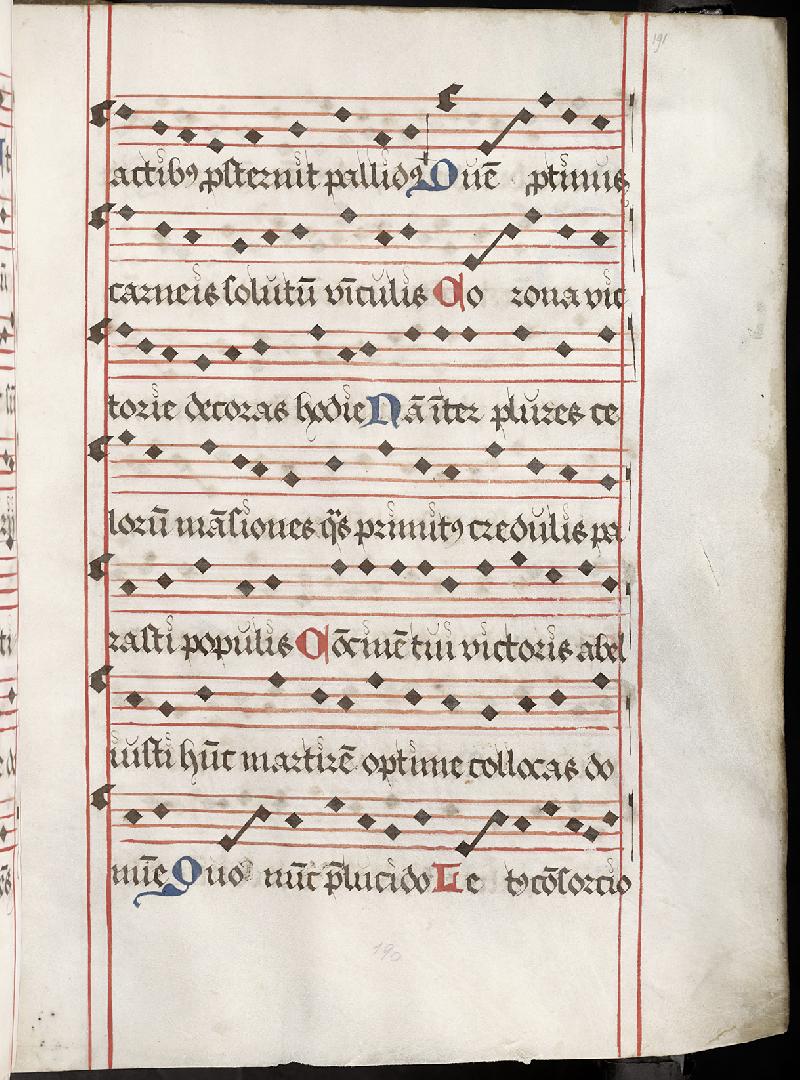 191
actibꝰ ꝓsternit pallidꝰ Quē ꝓtinus
carneis solutū vīculis Co rona vic
torie decoras hodie Nā īter plures ce
lorū māsiones q̄s primitꝰ credulis pa
rasti populis Cōcinētin victoris abel
iusti hūc martirē optime collocas do
mīe Quo nūc p̄lucido Le to cōsorcio
190